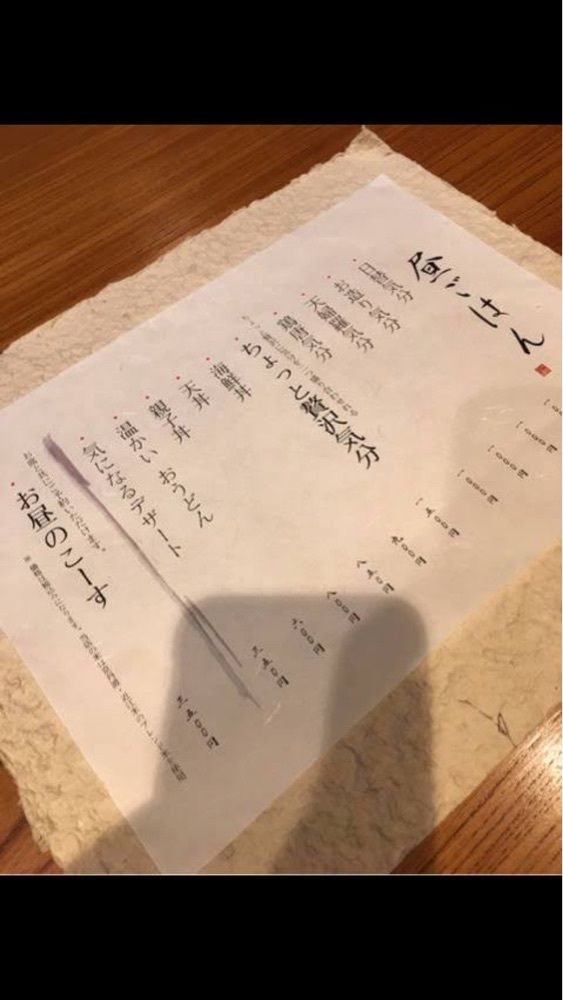 昼ごはん
日替気分
お造り気分 一〇〇〇円
天麩羅気分 一〇〇〇円
鶏唐気分 一〇〇〇円
ちょっと贅沢気分 一五〇〇円
海鮮丼 九〇〇円
天丼 八五〇円
親子丼 八〇〇円
温かい おうどん 六〇〇円
気になるデザート 三五〇円
お昼のこーす 三五〇〇円
※価格は税込みになります。